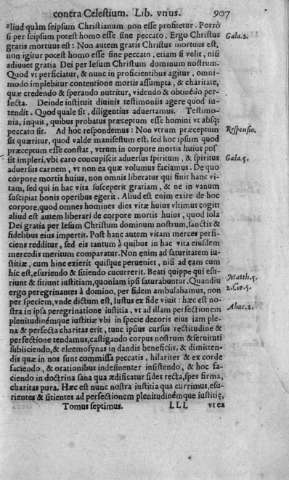 contra Celestium. Lib. vnus. 907
aliud quàm seipsum Christianum non esse profitetur. Porrò
si per seipsum potest homo esse sine peccato, Ergo Christus
gratis mortuus est: Non autem gratis Christus mortuus est,
non igitur potest homo esse sine peccato, etiam si velit, nisi
adiuuet gratia Dei per Iesum Christum dominum nostrum.
Quod vt perficiatur, & nunc in proficientibus agitur, omni-
modo implebitur contentione mortis assumpta, & charitate,
quæ credendo & sperando nutritur, videndo & obtinẽdo per-
fecta. Deinde instituit diuinis testimoniis agere quod in-
tendit. Quod quale sit, diligentius aduertamus. Testimo-
nia, inquit, quibus probatur præceptum esse homini vt absq;
peccato sit. Ad hoc respondemus: Non vtrum præceptum
sit quæritur, quod valde manifestum est, sed hoc ipsum quod
præceptum esse constat, vtrum in corpore mortis huius pos-
sit impleri, vbi caro concupiscit aduersus spiritum, & spiritus
aduersus carnem, vt non ea quæ volumus faciamus. De quo
corpore mortis huius, non omnis liberatur qui finit hanc vi-
tam, sed qui in hac vita susceperit gratiam, & ne in vanum
suscipiat bonis operibus egerit. Aliud est enim exire de hoc
corpore, quod omnes homines dies vitæ huius vltimus cogit:
aliud est autem liberari de corpore mortis huius, quod sola
Dei gratia per Iesum Christum dominum nostrum, sanctis &
fidelibus eius impertit. Post hanc autem vitam merces perfi-
ciens redditur, sed eis tantùm à quibus in hac vita eiusdem
mercedis meritum comparatur. Non enim ad saturitatem iu-
stitiæ, cum hinc exierit quisque perueniet, nisi ad eam cum
hîc est, esuriendo & sitiendo cucurrerit. Beati quippe qui esu-
riunt & sitiunt iustitiam, quoniam ipsi saturabuntur. Quandiu
ergo peregrinantes à domino, per fidem ambulamus, non
per speciem, vnde dictum est, Iustus ex fide viuit: hæc est no-
stra in ipsa peregrinatione iustitia, vt ad illam perfectionem
plenitudinemque iustitiæ vbi in specie decoris eius iam ple-
na & perfecta charitas erit, nunc ipsius cursus rectitudine &
perfectione tendamus, castigando corpus nostrum & seruituti
subiiciendo, & eleemosynas in dandis beneficiis, & dimitten-
dis quæ in nos sunt commissa peccatis, hilariter & ex corde
faciendo, & orationibus indesinenter insistendo, & hoc fa-
ciendo in doctrina sana qua ædificatur fides recta, spes firma,
charitas pura. Hæc est nunc nostra iustitia qua currimus, esu-
rientes & sitientes ad perfectionem plenitudinemque iustitiæ,
Tomus septimus. LLL vt ea
Gala.2.
Responsio.
Gala.5.
Matth.5.
2.Cor.5.
Abac.2.